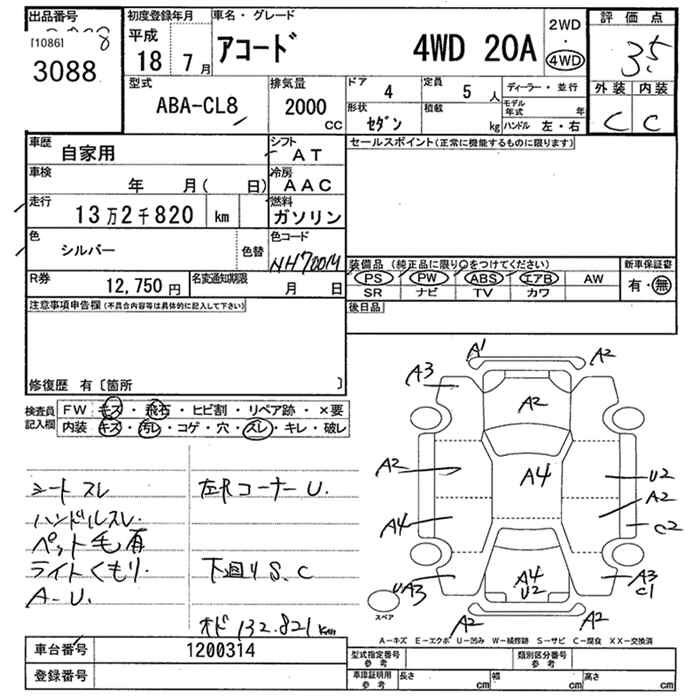 出品番号
[1086]
3088
初度登録年月
平成
18 7月
車名・グレード
アコード 4WD 20A
2WD
・
4WD
評価点
3.5
外装 内装
C C
型式
ABA-CL8
排気量
2000
CC
ドア
4
定員
5 人
形状
セダン
積載
kg
ディーラー・並行
モデル年式 年
ハンドル 左・右
車歴
自家用
シフト
AT
車検
年 月( 日)
冷房
AAC
走行
13万2千820 km
燃料
ガソリン
色
シルバー
色替
色コード
NH700M
R券
12,750円
名変通知期限
月 日
セールスポイント(正常に機能するものに限ります)
装備品 (純正品に限り○をつけてください)
PS PW ABS エアB AW
SR ナビ TV カワ
新車保証書
有・無
後日品
注意事項申告欄(不具合内容等は具体的に記入して下さい)
修復歴 有〔箇所 〕
検査員記入欄
FW キズ・飛石・ヒビ割・リペア跡・×要
内装 キズ・汚レ・コゲ・穴・スレ・キレ・破レ
シートスレ
ハンドルスレ.
ペット毛有
ライトくもり.
A-U.
左Rコーナー U.
下廻り S.C
オド 132.821km
A1
A2
A3
A2
A2
A4
U2
A2
A4
C2
A4
U2
UA3
A3
C1
A2
A2
スペア
A-キズ E-エクボ U-凹み W-補修跡 S-サビ C-腐食 XX-交換済
車台番号 1200314
登録番号
型式指定番号
参考
類別区分番号
参考
車庫証明用
参考
長さ cm
幅 cm
高さ cm